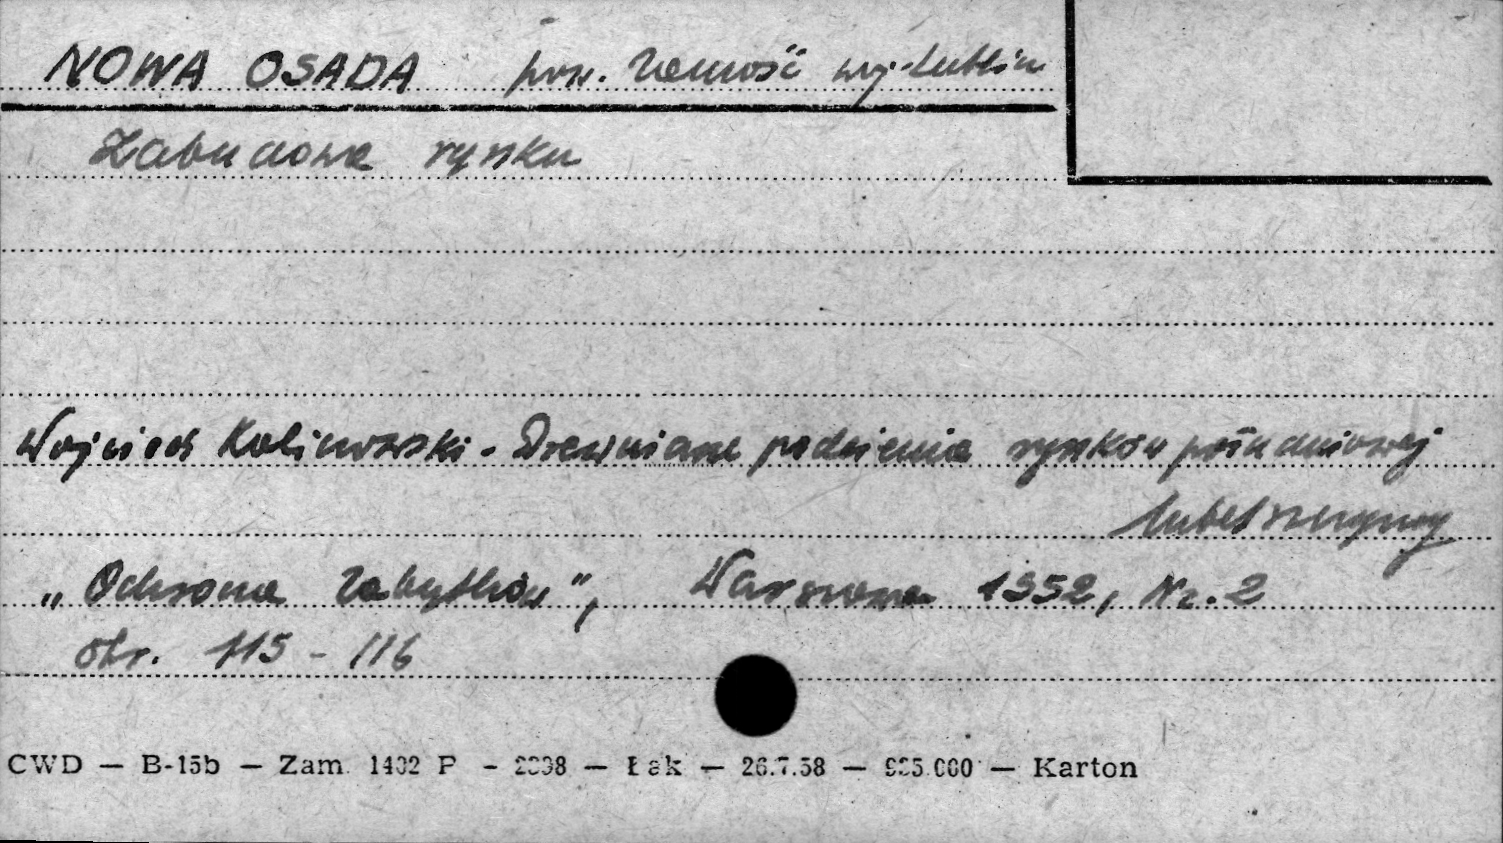 NOWA OSADA pow. Zamość woj. Lublin
Zabudowa rynku
Wojciech Kalinowski - Drewniane podcienia rynków południowej
Lubelszczyzny
„Ochrona Zabytków", Warszawa 1952, Nr. 2
str. 115 - 116
CWD — B-15b — Zam. 1402 P - — Łak — 26.7.58 — — Karton